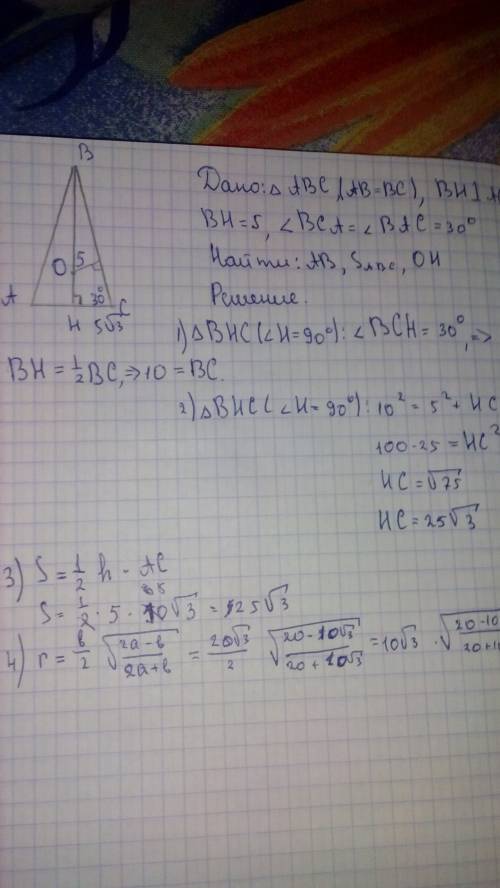 B
Дано: △ ABC, (AB=BC), BH ⊥
BH=5, ∠BCA=∠BAC=30°
Найти: AB, S_ABC, OH
Решение.
O 5
A 30° C
H 5√3
1) △BHC (∠H=90°): ∠BCH=30°, =>
BH = 1/2 BC, => 10 = BC.
2) △BHC (∠H=90°): 10² = 5² + HC
100-25 = HC²
HC = √75
HC = 25√3
3) S = 1/2 h · AC
S = 1/2 · 5 · 10√3 = 25√3
4) r = b/2 √(2a-b / 2a+b) = 20√3/2 √(20-10√3 / 20+10√3) = 10√3 · √(20-10 / 20+1